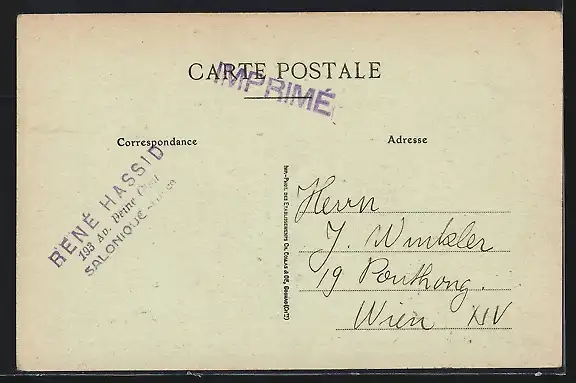 CARTE POSTALE
IMPRIMÉ
Correspondance
Adresse
RENÉ HASSID
193 Av. Reine Olga
SALONIQUE
IMP.-PHOT. DES ETABLISSEMENTS CH. COLAS & CIE, COGNAC (CHTE)
Herrn
J. Winkler
19
Wien XIV